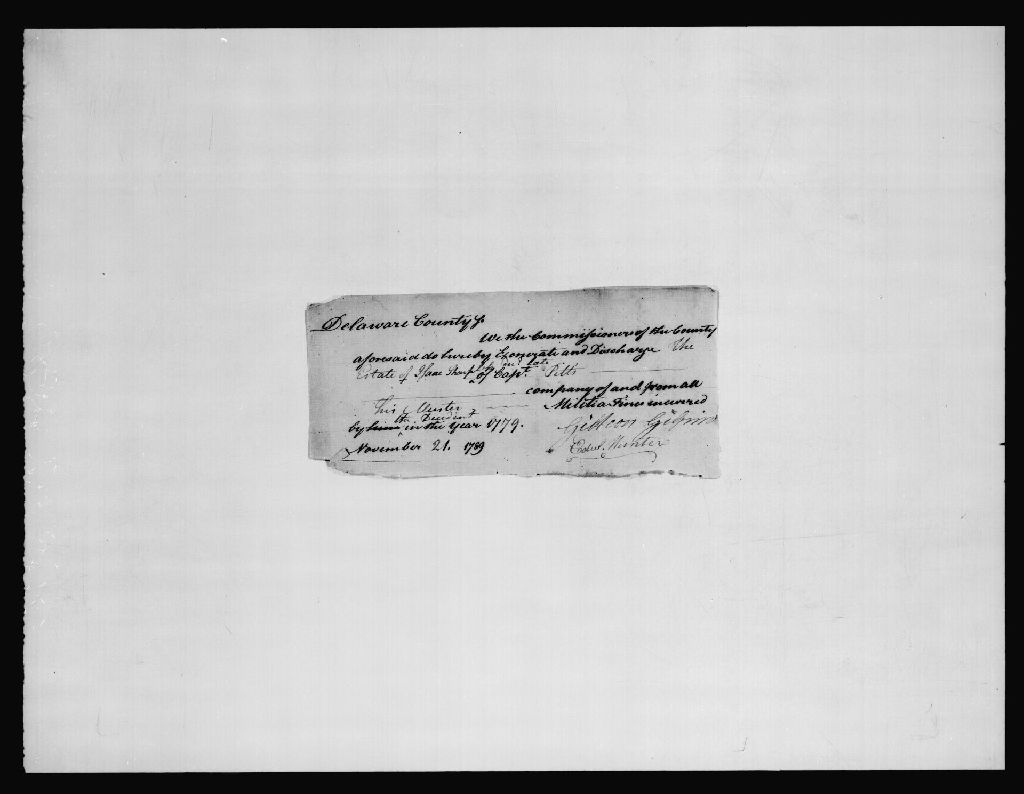 Delaware County ss
We the Commissioners of the County
aforesaid do hereby Exonerate and Discharge The
Estate of Isaac Sharpless late
of Capt. Pitts
company of and from all
This Muster Militia Fines incurred
the Decedent
by him in the year 1779. Gideon Gilpin
November 21. 1789 Edwd. Hunter